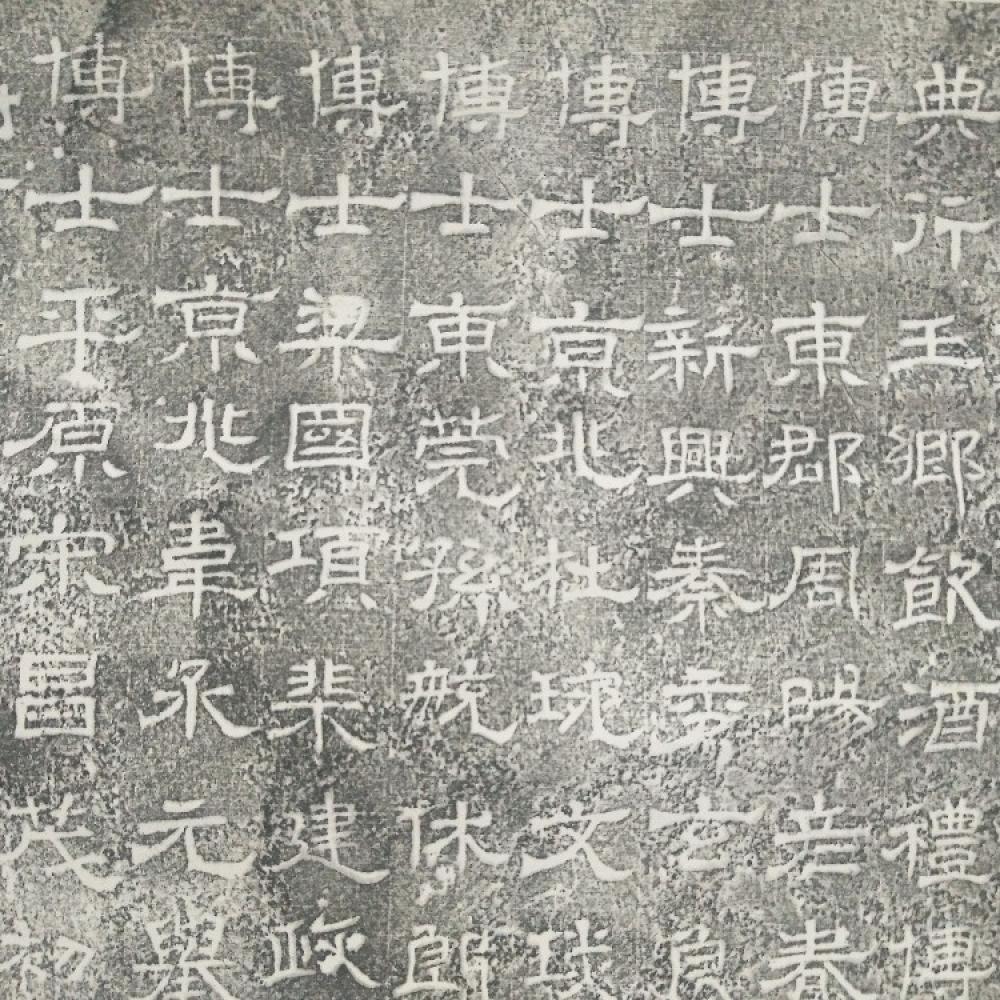 典行王鄉飲酒禮博
博士東郡周陽若春
博士新興秦
博士京兆杜琬文琰
博士東莞孫毓休朗
博士梁國項棐建政
博士京兆韋永元舉
博士平原宋昌茂初